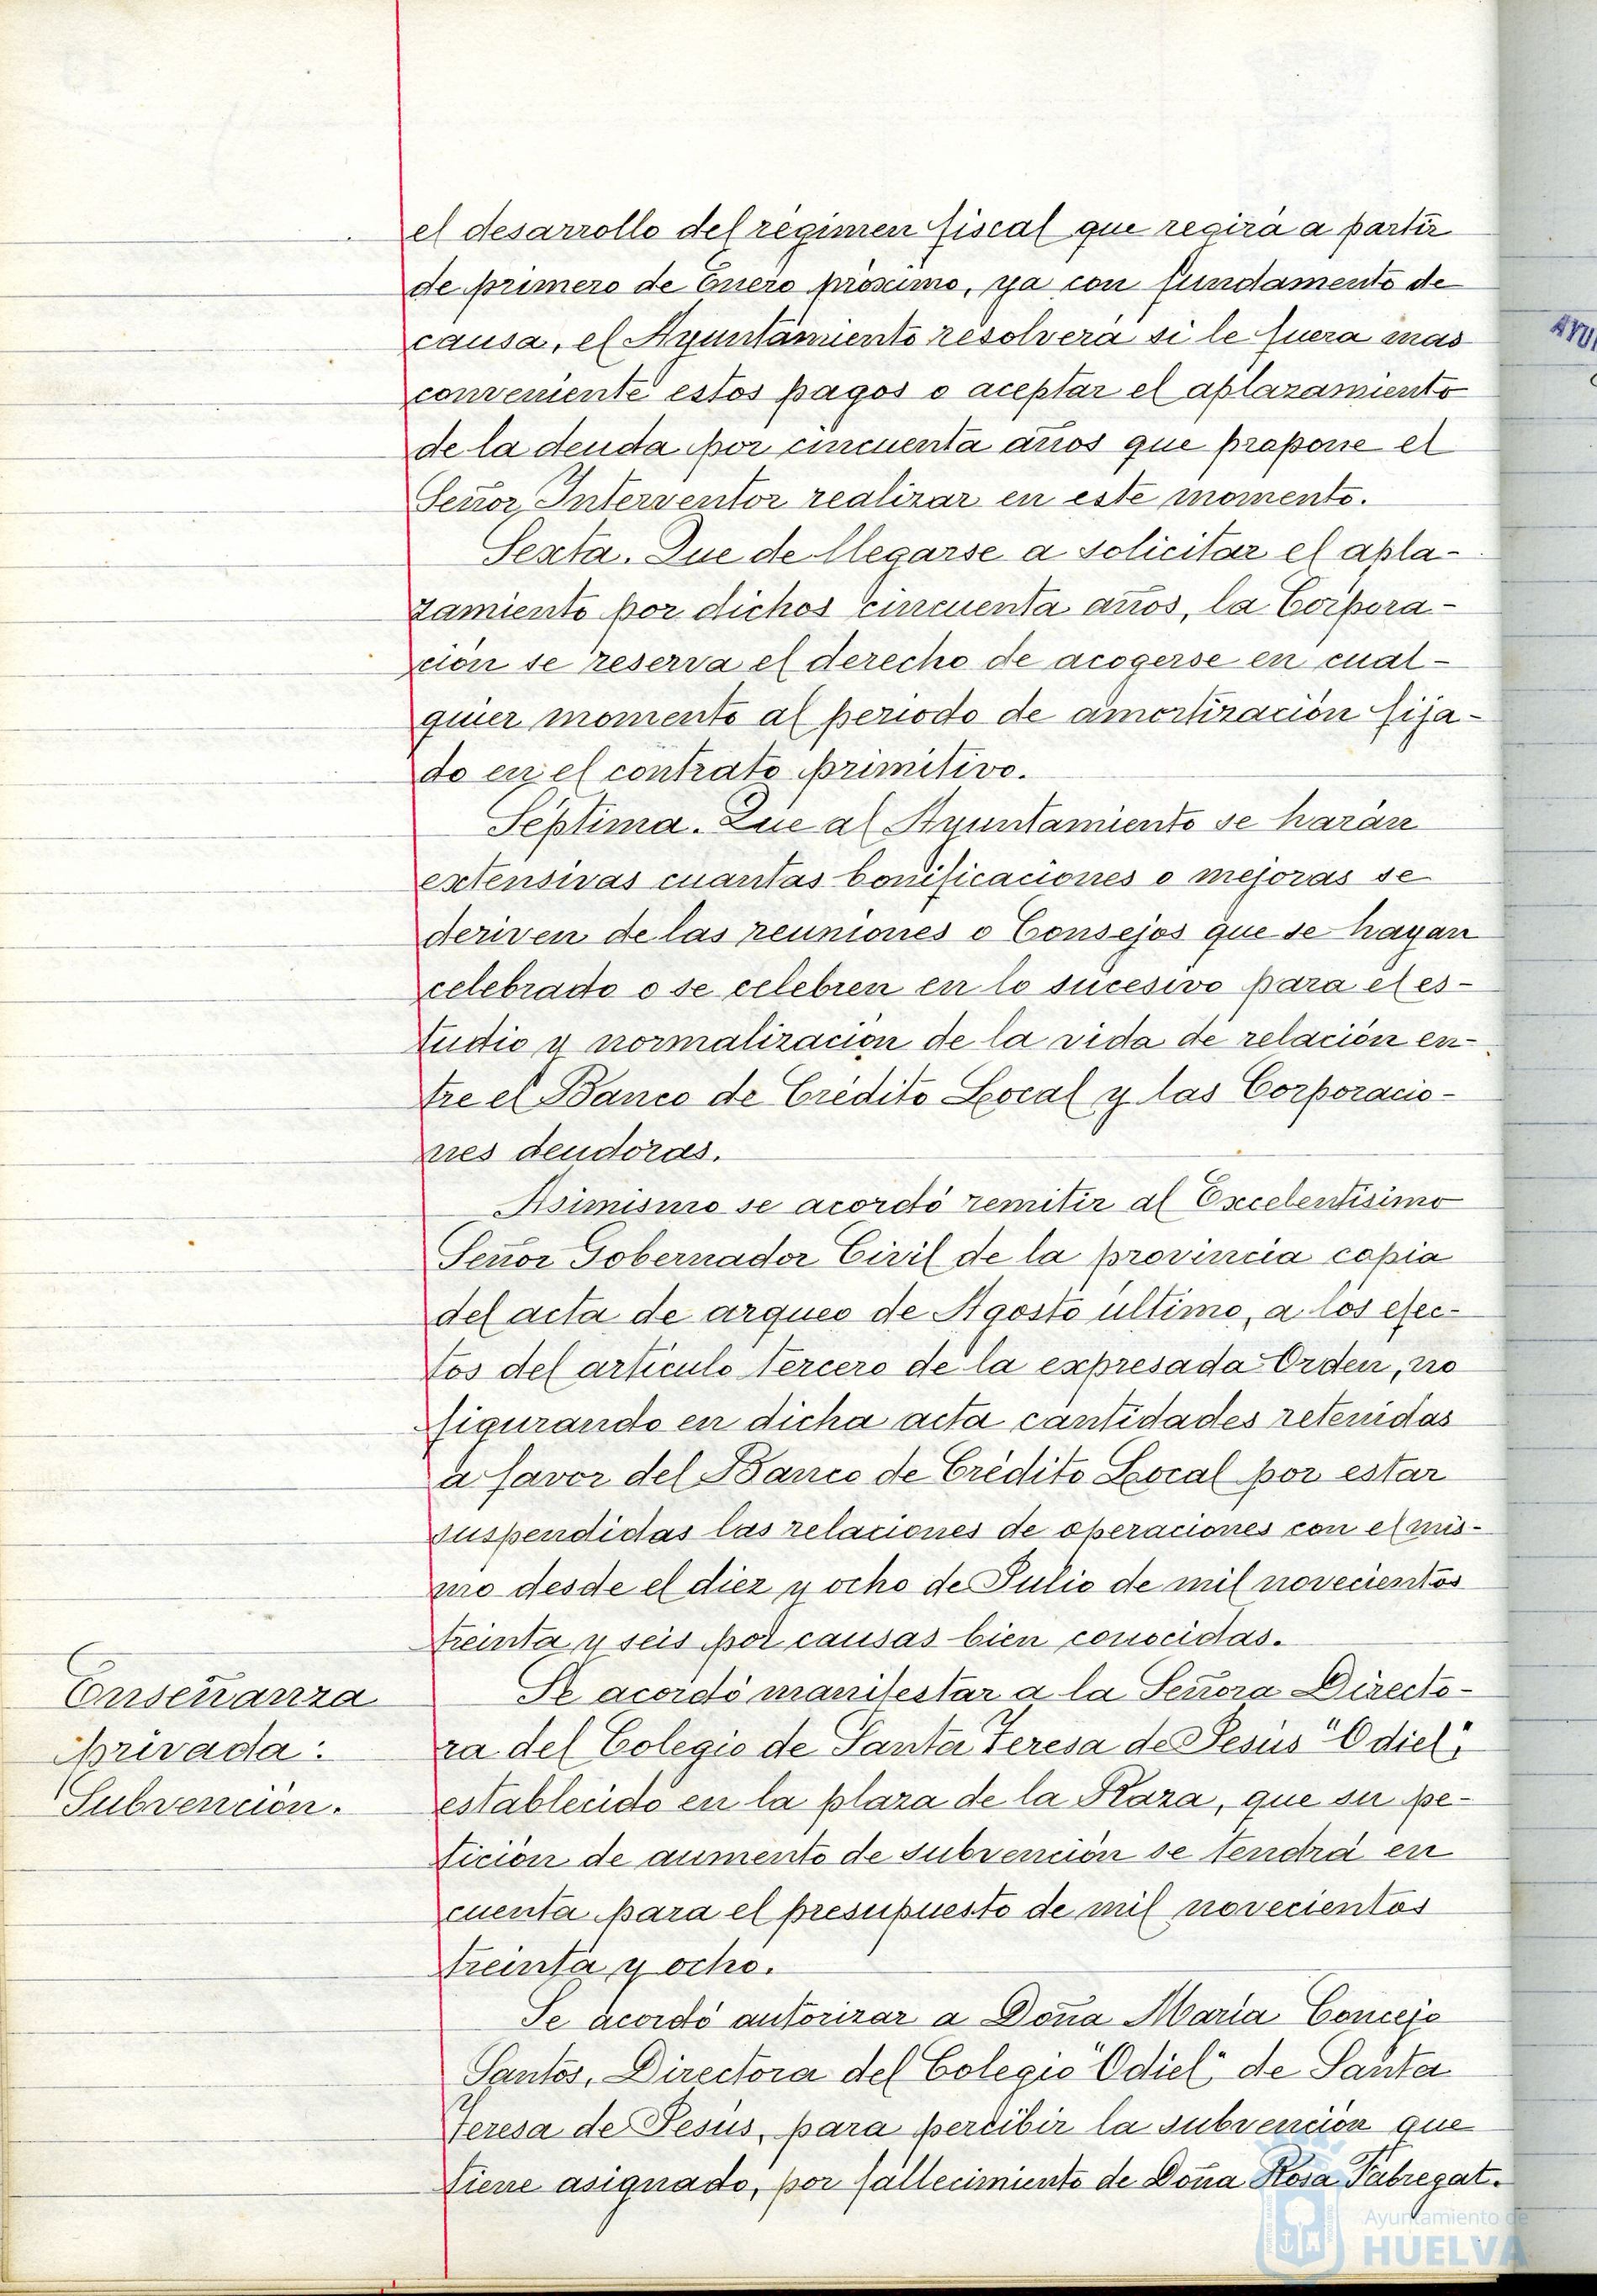 el desarrollo del régimen fiscal que regirá a partir
de primero de Enero próximo, ya con fundamento de
causa, el Ayuntamiento resolverá si le fuera mas
conveniente estos pagos o aceptar el aplazamiento
de la deuda por cincuenta años que propone el
Señor Interventor realizar en este momento.
Sexta. Que de llegarse a solicitar el apla-
zamiento por dichos cincuenta años, la Corpora-
ción se reserva el derecho de acogerse en cual-
quier momento al periodo de amortización fija-
do en el contrato primitivo.
Séptima. Que al Ayuntamiento se harán
extensivas cuantas bonificaciones o mejoras se
deriven de las reuniones o Consejos que se hayan
celebrado o se celebren en lo sucesivo para el es-
tudio y normalización de la vida de relación en-
tre el Banco de Crédito Local y las Corporacio-
nes deudoras.
Asimismo se acordó remitir al Excelentísimo
Señor Gobernador Civil de la provincia copia
del acta de arqueo de Agosto último, a los efec-
tos del artículo tercero de la expresada Orden, no
figurando en dicha acta cantidades retenidas
a favor del Banco de Crédito Local por estar
suspendidas las relaciones de operaciones con el mis-
mo desde el diez y ocho de Julio de mil novecientos
treinta y seis por causas bien conocidas.
Enseñanza
Privada:
Subvención.
Se acordó manifestar a la Señora Directo-
ra del Colegio de Santa Teresa de Jesús "Odiel",
establecido en la plaza de la Plaza, que su pe-
tición de aumento de subvención se tendrá en
cuenta para el presupuesto de mil novecientos
treinta y ocho.
Se acordó autorizar a Doña María Concejo
Santos, Directora del Colegio "Odiel" de Santa
Teresa de Jesús, para percibir la subvención que
tiene asignado, por fallecimiento de Doña Rosa Fabregat.
Ayuntamiento de
HUELVA